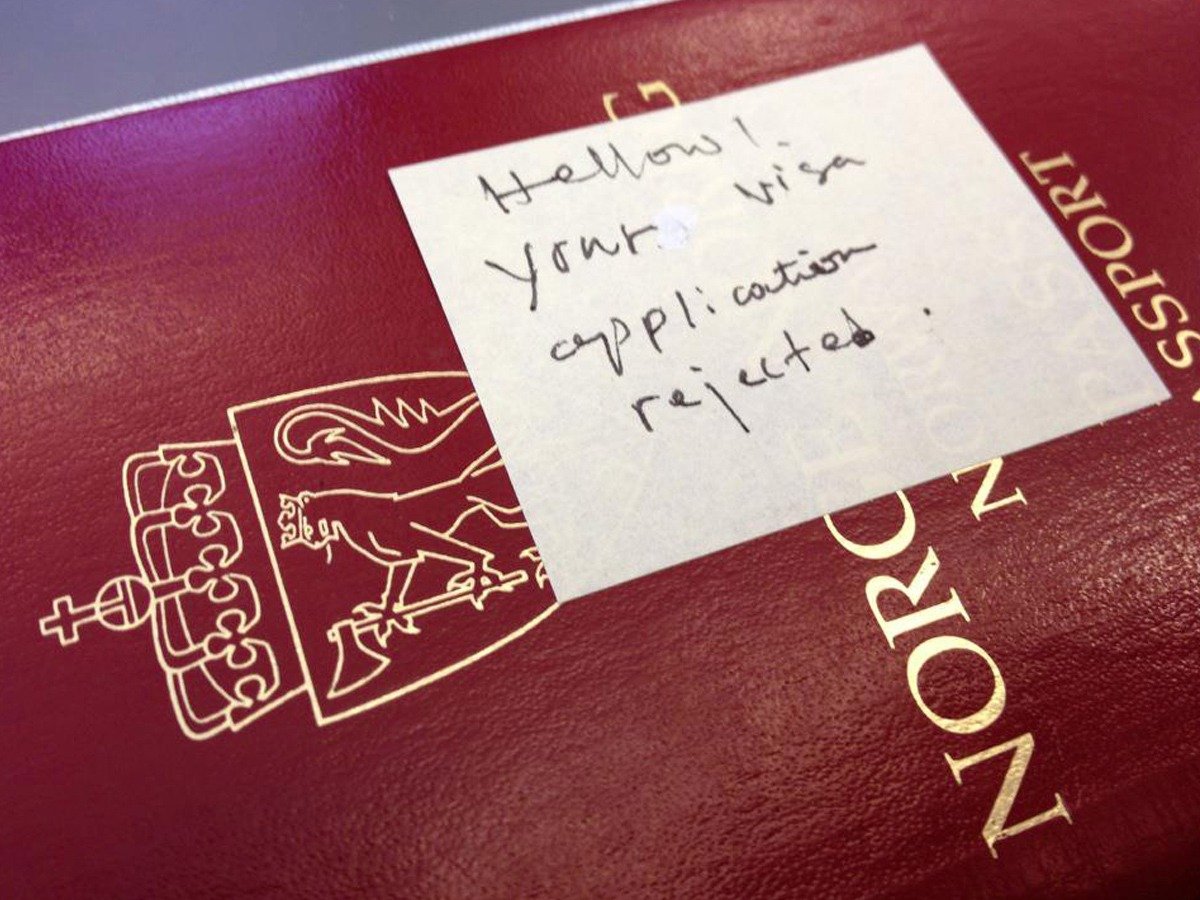 Hellow!.
your visa
application
rejected.
NORGE
SSPORT